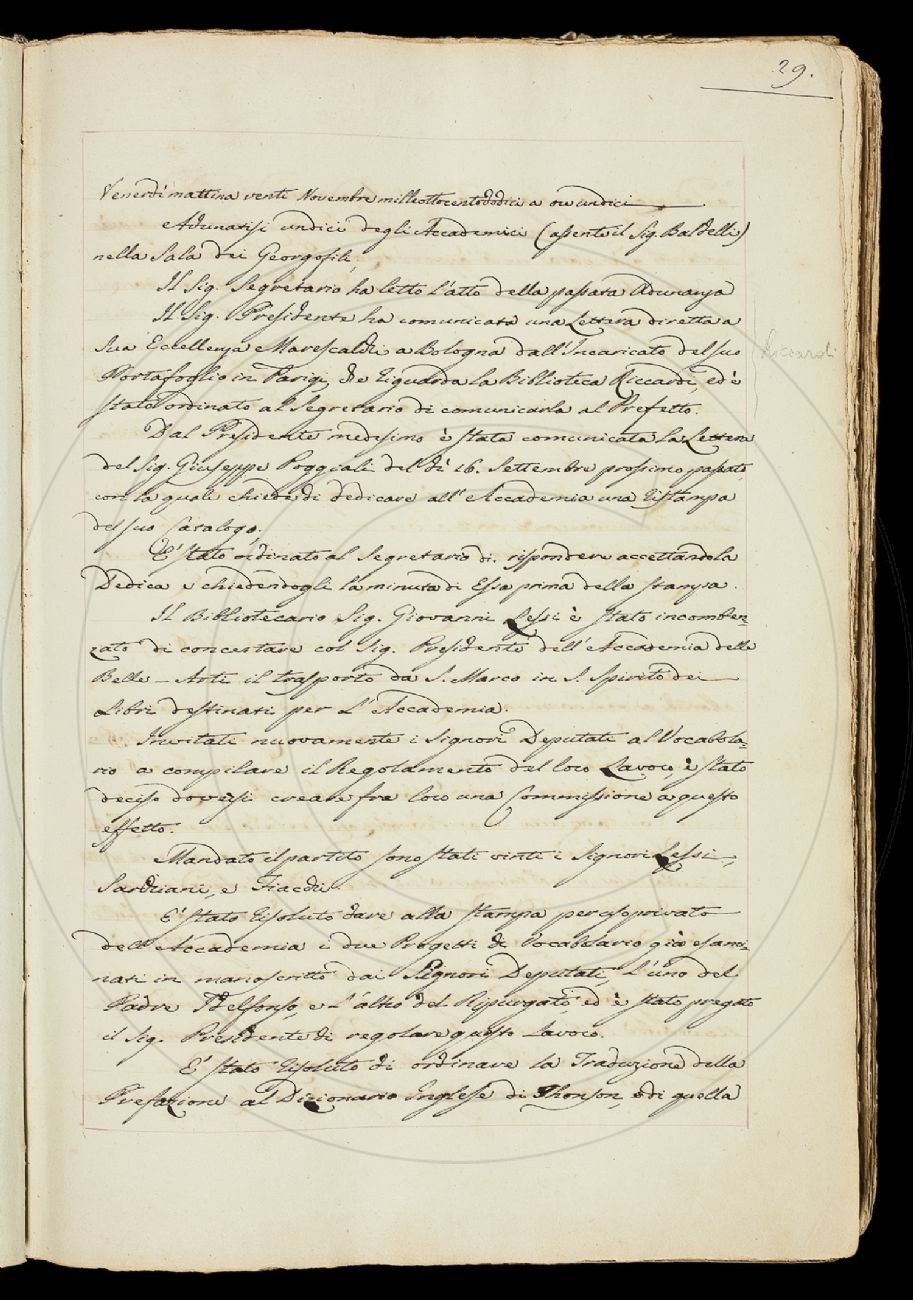 29.
Venerdì mattina venti Novembre milleottocentododici a ore undici
Adunatisi undici degli Accademici (assente il Sig. Baldelli)
nella Sala dei Georgofili,
Il Sig. Segretario ha letto l'atto della passata Adunanza
Il Sig. Presidente ha comunicata una Lettera diretta a
Sua Eccellenza Marescalchi a Bologna dall'Incaricato del suo
Portafoglio in Parigi, che riguarda la Biblioteca Riccardi, ed è
stato ordinato al Segretario di comunicarla al Prefetto.
Riccardi
Dal Presidente medesimo è stata comunicata la Lettera
del Sig. Giuseppe Poggiali del dì 26. Settembre prossimo passato,
con la quale chiede di dedicare all'Accademia una ristampa
del suo Catalogo.
E' stato ordinato al Segretario di rispondere accettando la
Dedica e chiedendogli la minuta di Essa prima della stampa.
Il Bibliotecario Sig. Giovanni Lessi è stato incomben-
zato di concertare col Sig. Presidente dell'Accademia delle
Belle-Arti il trasporto da S. Marco in S. Spirito dei
Libri destinati per L'Accademia.
Invitati nuovamente i Signori Deputati al Vocabola-
rio a compilare il Regolamento del loro Lavoro, è stato
deciso doversi creare fra loro una Commissione a questo
effetto.
Mandato il partito sono stati vinti i Signori Lessi,
Sarchiani, e Fiacchi.
E' stato risoluto dare alla stampa per uso privato
dell'Accademia i due Progetti di Vocabolario già esami-
nati in manoscritto dai Signori Deputati, L'uno del
Padre Idelfonso, e L'altro del Ripurgato, ed è stato pregato
il Sig. Presidente di regolare questo Lavoro.
E' stato risoluto di ordinare la Traduzione della
Prefazione al Dizionario Inglese di Jhonson, e di quella